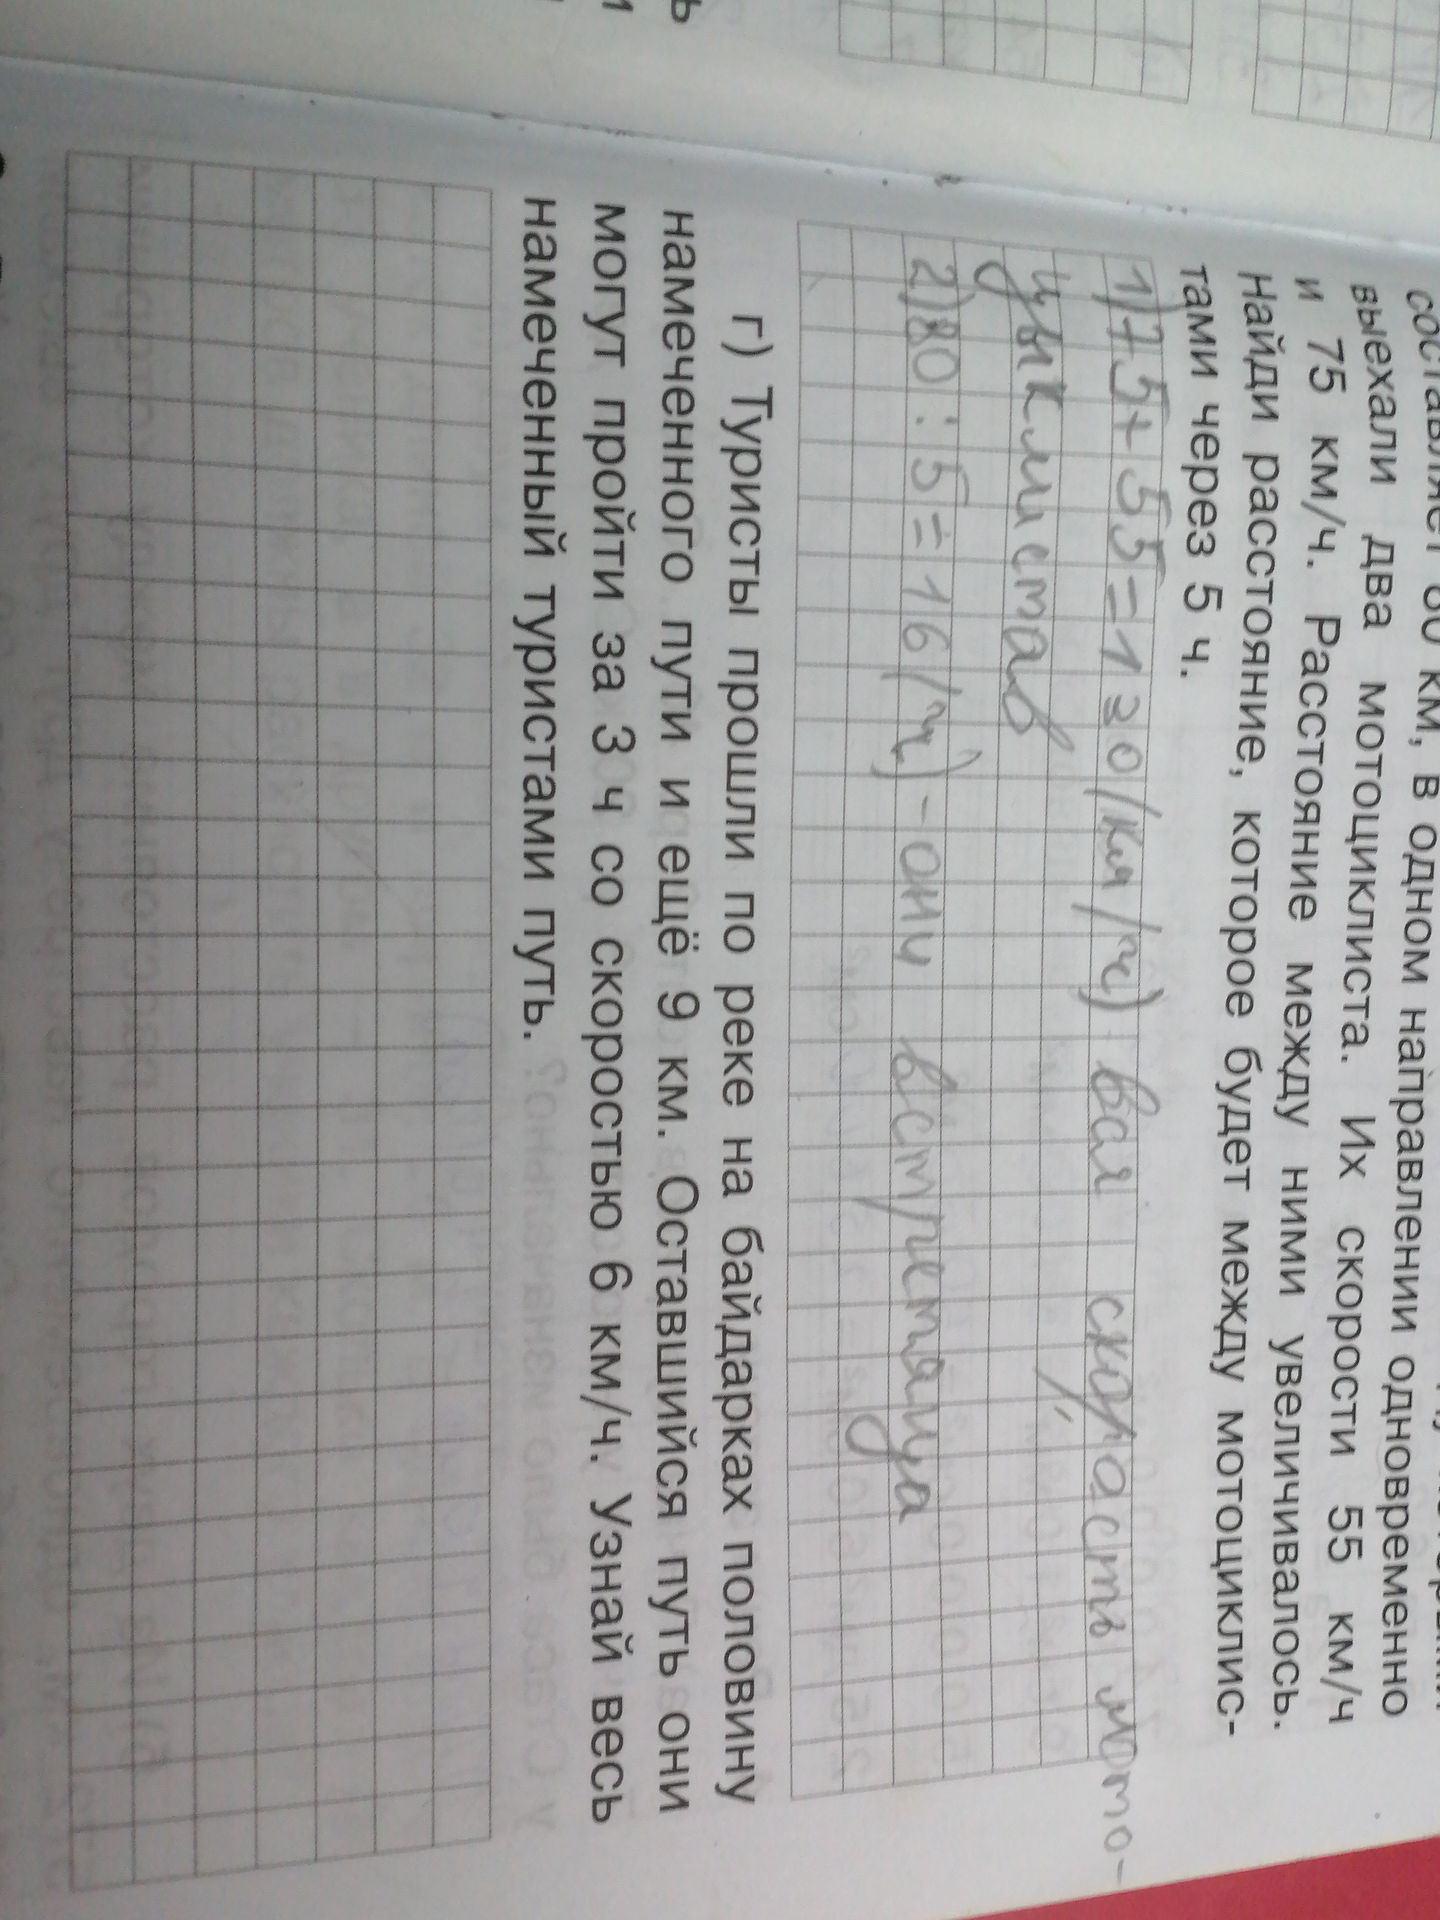 км, в одном направлении одновременно
выехали два мотоциклиста. Их скорости 55 км/ч
и 75 км/ч. Расстояние между ними увеличивалось.
Найди расстояние, которое будет между мотоциклис-
тами через 5 ч.
1) 75+55=130(км/ч) вая скорасть мото-
цыклистав
2) 80:5=16(ч)-они встретяца
г) Туристы прошли по реке на байдарках половину
намеченного пути и ещё 9 км. Оставшийся путь они
могут пройти за 3 ч со скоростью 6 км/ч. Узнай весь
намеченный туристами путь.